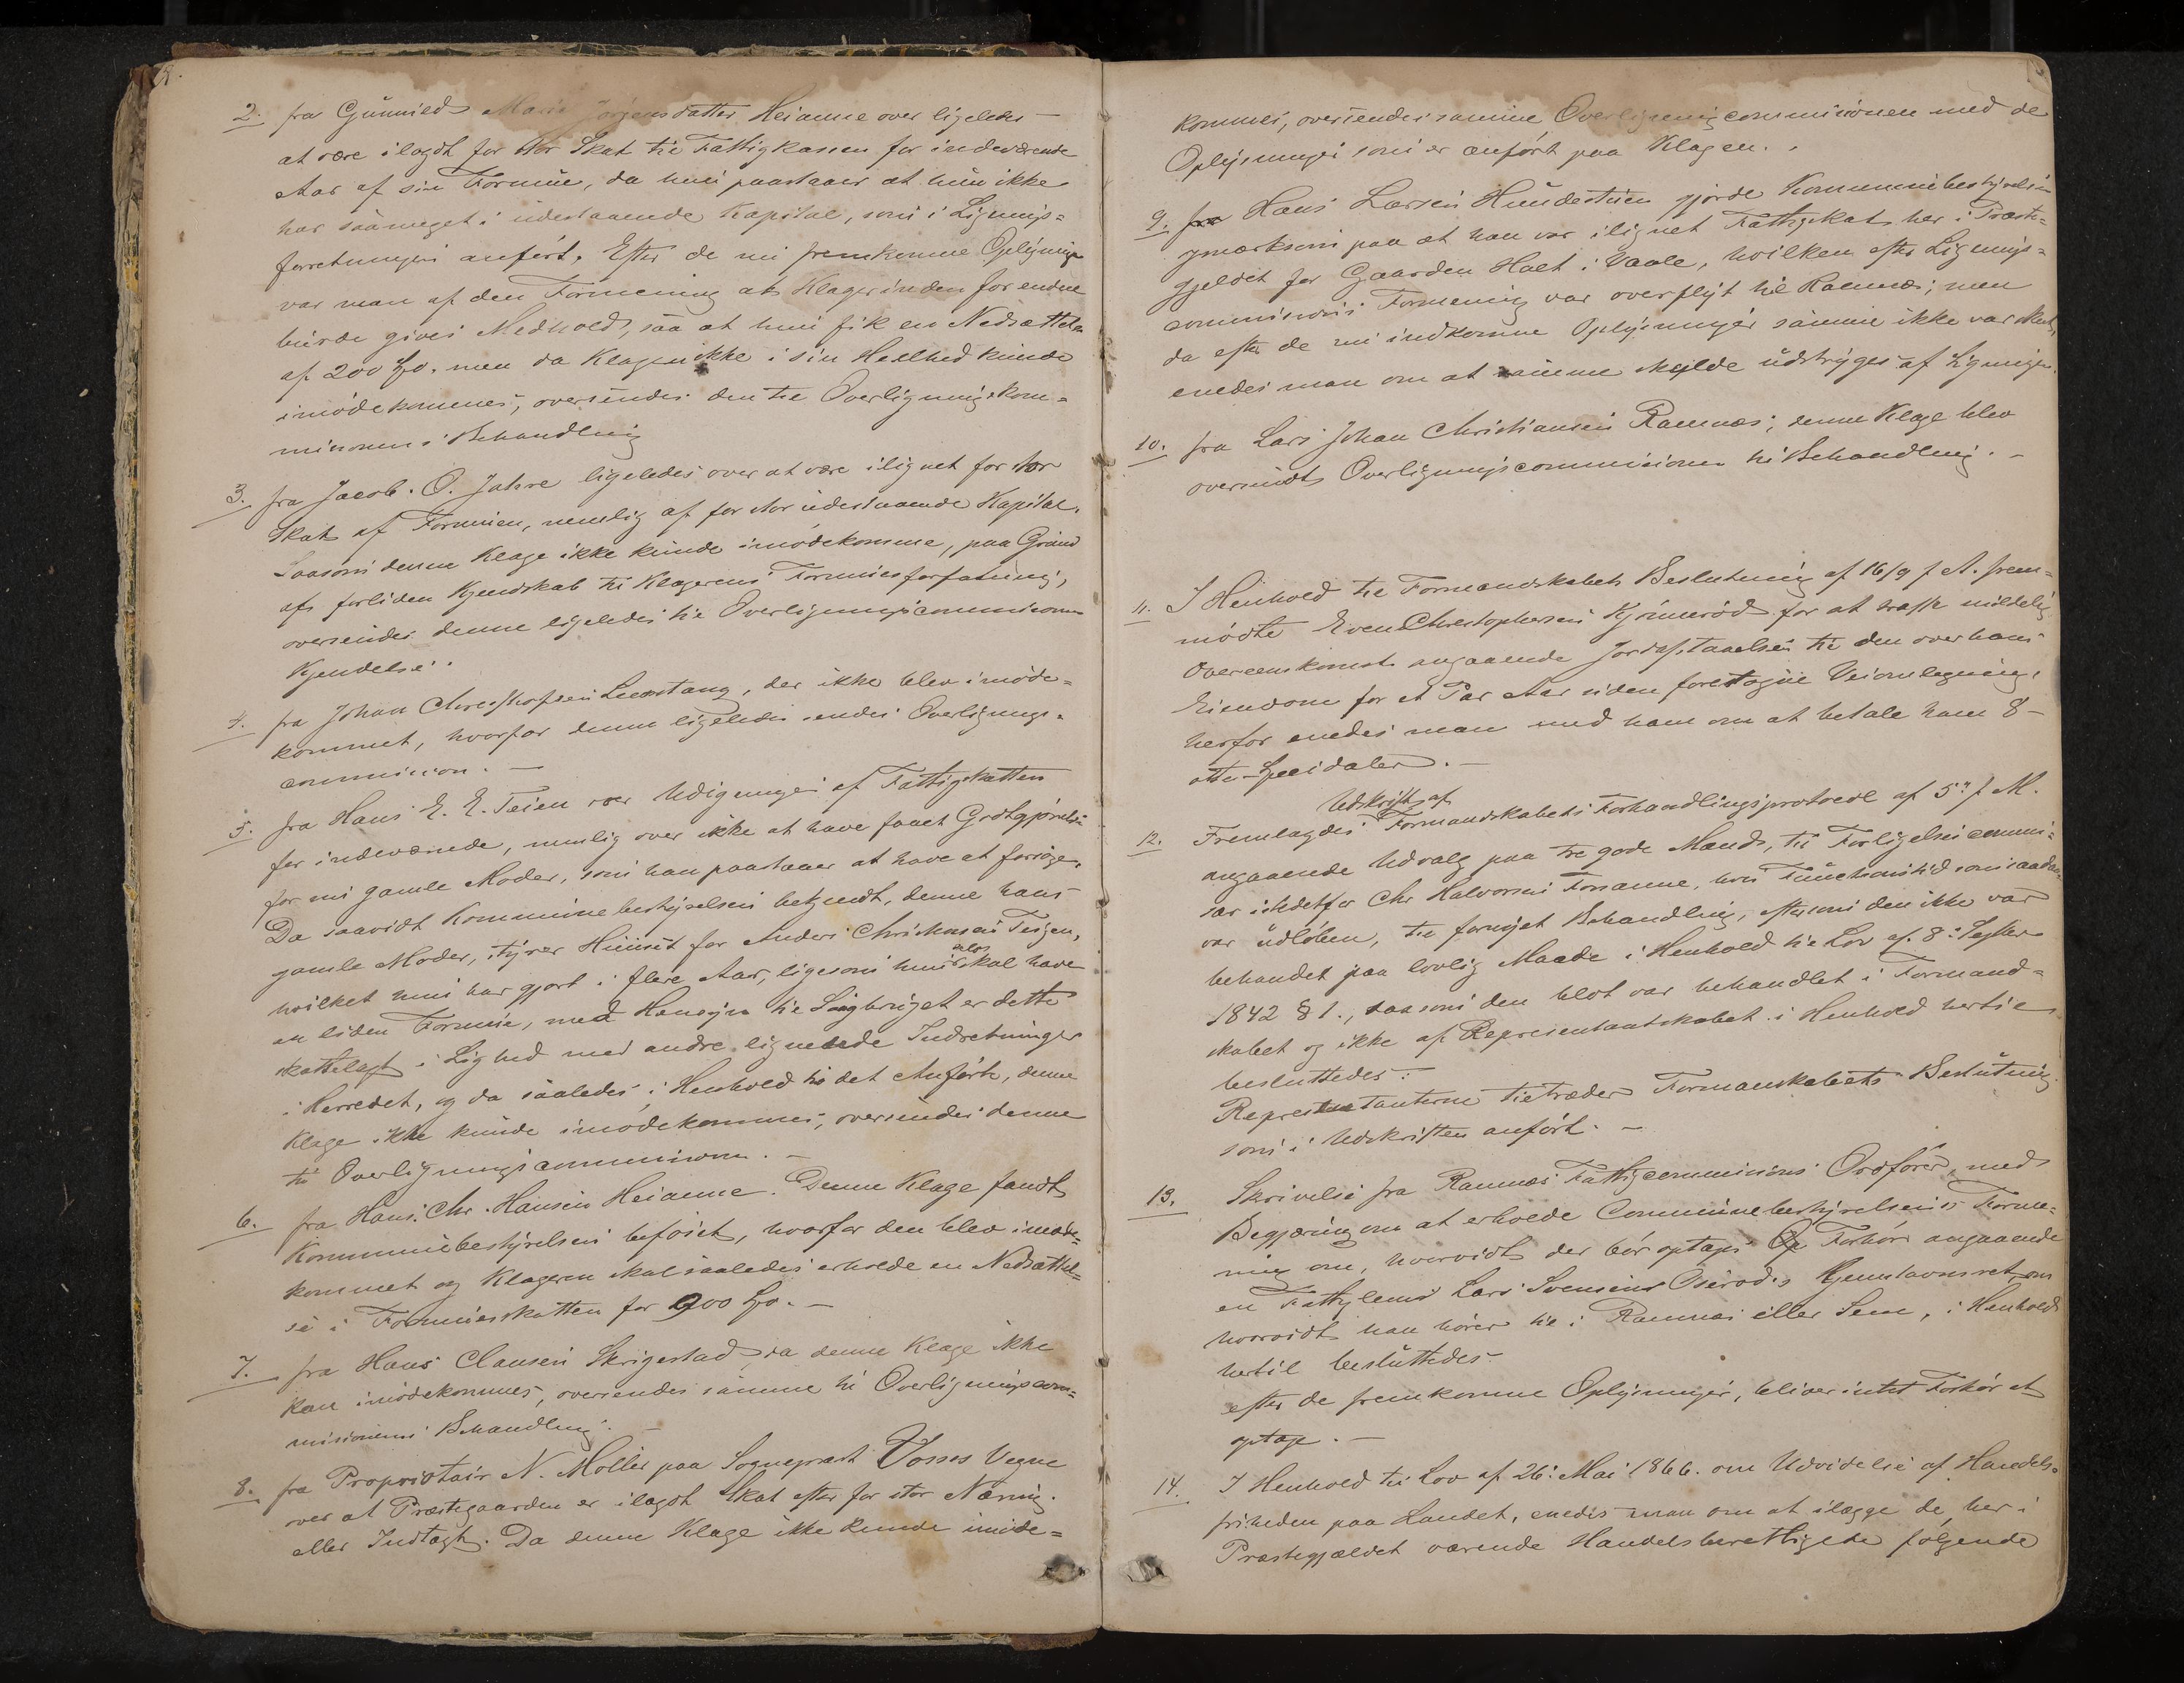 2. fra Gunnild Marie Jörgensdatter Heianne over ligeledes
at være ilagdt for stor Skat til Fattigkassen for indeværende
Aar af sin Formue, da hun paastaaer at hun ikke
har saameget i udestaaende Kapital, som i Lignings=
forretningen anført. Efter de nu fremkomne Oplysninger
var man af den Formening at Klagerinden for endeel
burde gives Medhold, saa at hun fik en Nedsættelse
af 200 Spd. men da Klagen ikke i sin Heelhed kunde
imødekommes, oversendes den til Overligningskom=
missionens Behandling
3. fra Jacob. O. Jahre ligeledes over at være ilignet for stor
Skat af Formuen, nemlig af for stor udestaaende Kapital.
Saasom denne Klage ikke kunde imødekomme, paa Grund
af forliden Kjendskab til Klagerens Formuesforfatning,
oversendes denne ligeledes til Overligningscommissionens
Kjendelse.
4. fra Johan Christophersen Linnestang, der ikke blev imøde=
kommet, hvorfor denne ligeledes sendes Overlignings=
commission. —
5. fra Hans E. E. Teien over Udligningen af Fattigskatten
for indeværende, nemlig over ikke at have faaet Godtgjørelse
for sin gamle Moder, som han paastaaer at have at forsørge.
Da saavidt Kommunebestyrelsen bekjendt, denne hans
gamle Moder, styrer Huuset for Anders Christensen Teigen,
hvilket hun har gjort i flere Aar, ligesom hun ogs skal have
en liden Formue, med Hensyn til Sagbruget er dette
skattelagt i Lighed med andre lignende Indretninger
i Herredet, og da saaledes i Henhold til det Anførte, denne
Klage ikke kunde imødekommes, oversendes denne
til Overligningscommissionen. —
6. fra Hans. Chr. Hansen Heianne. Denne Klage fandt
Kommunebestyrelsen beføiet, hvorfor den blev imøde=
kommet og Klageren skal saaledes erholde en Nedsættel=
se i Formuesskatten for 900 Spd. —
7. fra Hans Clausen Skrigestad da denne Klage ikke
kan imødekommes, oversendes samme til Overligningscom=
missionens Behandling. —
8. fra Proprietair N. Møller paa Sogneprest Vosses Vegne
over at Præstegaarden er ilagdt Skat efter for stor Næring.
eller Indtægt. Da denne Klage ikke kunde imøde=
kommes, oversendes samme Overligningscommissionen med de
Oplysninger som er anført paa Klagen.
9. fra Hans Larsen Hundestuen gjorde Kommunebestyrelsen
opmærksom paa at han var ilignet Fattigskat her i Præste=
gjeldet for Gaarden Holt i Vaale, hvilken efter Lignings=
commissions Formening var overflyt til Ramnæs; men
da efter de nu indkomne Oplysninger samme ikke var skeet,
enedes man om at samme skylde udstryges af Ligningen.
10. fra Lars Johan Christiansen Ramnæs; denne Klage blev
oversendt Overligningscommissionen til Behandling. —
11. I Henhold til Formandskabets Beslutning af 16/9 f. A. frem=
mødte Even Christophersen Kjønnerød for at træffe mindelig
Overeenskomst angaaende Jordafstaaelsen til den over hans
Eiendom for et Par Aar siden foretagne Veiomlægning,
herfor enedes man med ham om at betale ham 8 —
otte Specidaler. —
Udskrift af
12. Fremlagdes Formandskabets Forhandlingsprotocol af 5te f. M.
angaaende Udvalg paa tre gode Mænd, til Forligelsescommi=
sær istedetfor Chr Halvorsen Forsanne, hvis Functionstid som saadan
var udløben, til fornyet Behandling, eftersom den ikke var
behandlet paa lovlig Maade i Henhold til Lov af 8de Septbr
1842 § 1., saasom den blot var behandlet i Formand=
skabet og ikke af Representantskabet i Henhold hertil
besluttedes:
Representanterne tiltræder Formanskabets Beslutning
som i Udskriften anført. —
13. Skrivelse fra Ramnæs Fattigcommissions Ordfører, med
Begjæring om at erholde Communebestyrelsens Forme=
ning om, hvorvidt der bør optages Forhør angaaende
en Fattiglems Lars Svensens Oserøds Hjemstavnsret, om
hvorvidt han hører til i Ramnæs eller Sem, i Henhold
hertil besluttedes.
efter de fremkomne Oplysninger, bliver intet Forhør at
optage. —
14. I Henhold til Lov af 26de Mai 1866. om Udvidelse af Handels=
friheden paa Landet, enedes man om at ilægge de, her i
Præstegjældet værende Handelsberettigede følgende